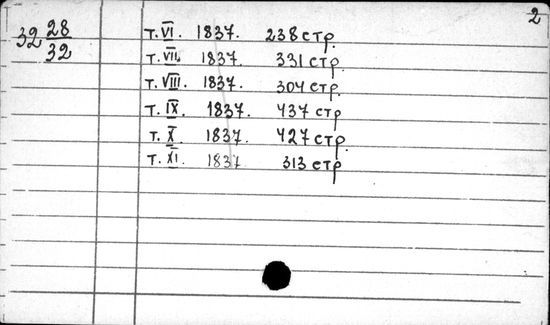 2
32 28/32
т. VI. 1837. 238 стр.
т. VII. 1837. 331 стр.
т. VIII. 1837. 304 стр.
т. IX. 1837. 437 стр.
т. X. 1837. 427 стр.
т. XI. 1837 313 стр